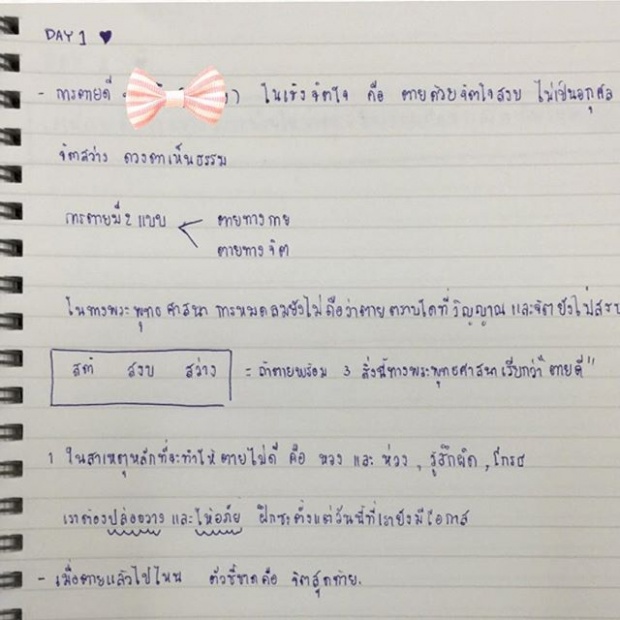 DAY 1 ♥
- การตายดี ) ในเชิงจิตใจ คือ ตายด้วยจิตใจสงบ ไม่เป็นอกุศล
จิตสว่าง ดวงตาเห็นธรรม
การตายมี 2 แบบ < ตายทางกาย
ตายทางจิต
ในทางพระพุทธศาสนา การหมดลมยังไม่ถือว่าตาย ตราบใดที่วิญญาณ และจิตยังไม่สงบ
สติ สงบ สว่าง = ถ้าตายพร้อม 3 สิ่งนี้ทางพระพุทธศาสนาเรียกว่า "ตายดี"
1 ในสาเหตุหลักที่จะทำให้ตายไม่ดี คือ หวง และ ห่วง , รู้สึกผิด , โกรธ
เราต้องปล่อยวาง และให้อภัย ฝึกซะตั้งแต่วันนี้ที่เรายังมีโอกาส
- เมื่อตายแล้วไปไหน ตัวชี้ขาดคือ จิตสุดท้าย.